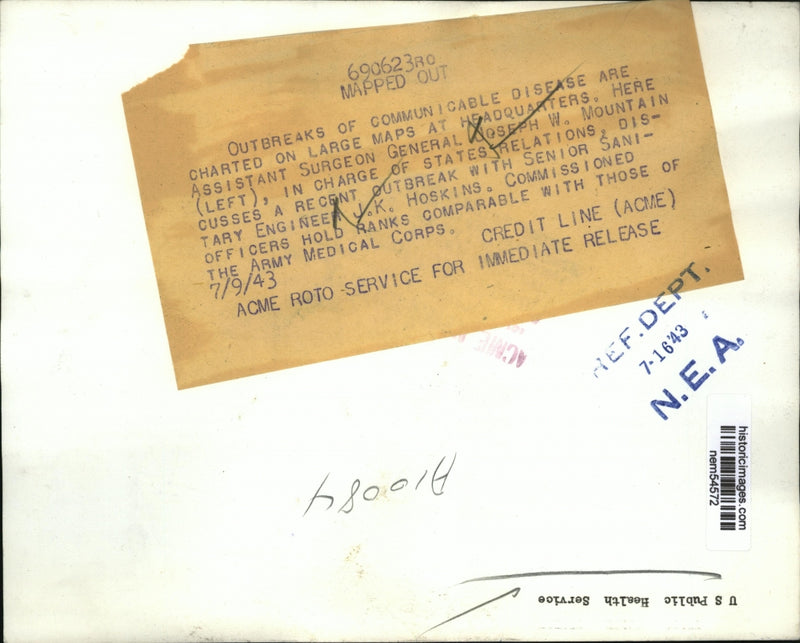 690623RO
MAPPED OUT
OUTBREAKS OF COMMUNICABLE DISEASE ARE
CHARTED ON LARGE MAPS AT HEADQUARTERS. HERE
ASSISTANT SURGEON GENERAL JOSEPH W. MOUNTAIN
(LEFT), IN CHARGE OF STATES RELATIONS, DIS-
CUSSES A RECENT OUTBREAK WITH SENIOR SANI-
TARY ENGINEER J.K. HOSKINS. COMMISSIONED
OFFICERS HOLD RANKS COMPARABLE WITH THOSE OF
THE ARMY MEDICAL CORPS. CREDIT LINE (ACME)
7/9/43
ACME ROTO SERVICE FOR IMMEDIATE RELEASE
ACME
REF. DEPT.
7-16'43
N.E.A.
historicimages.com
nem54572
A10084
U S Public Health Service